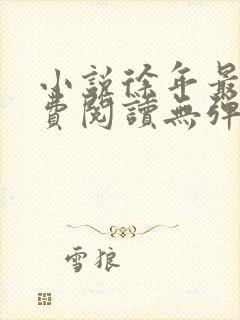 小說徐年最
費閱讀無彈
雪狼